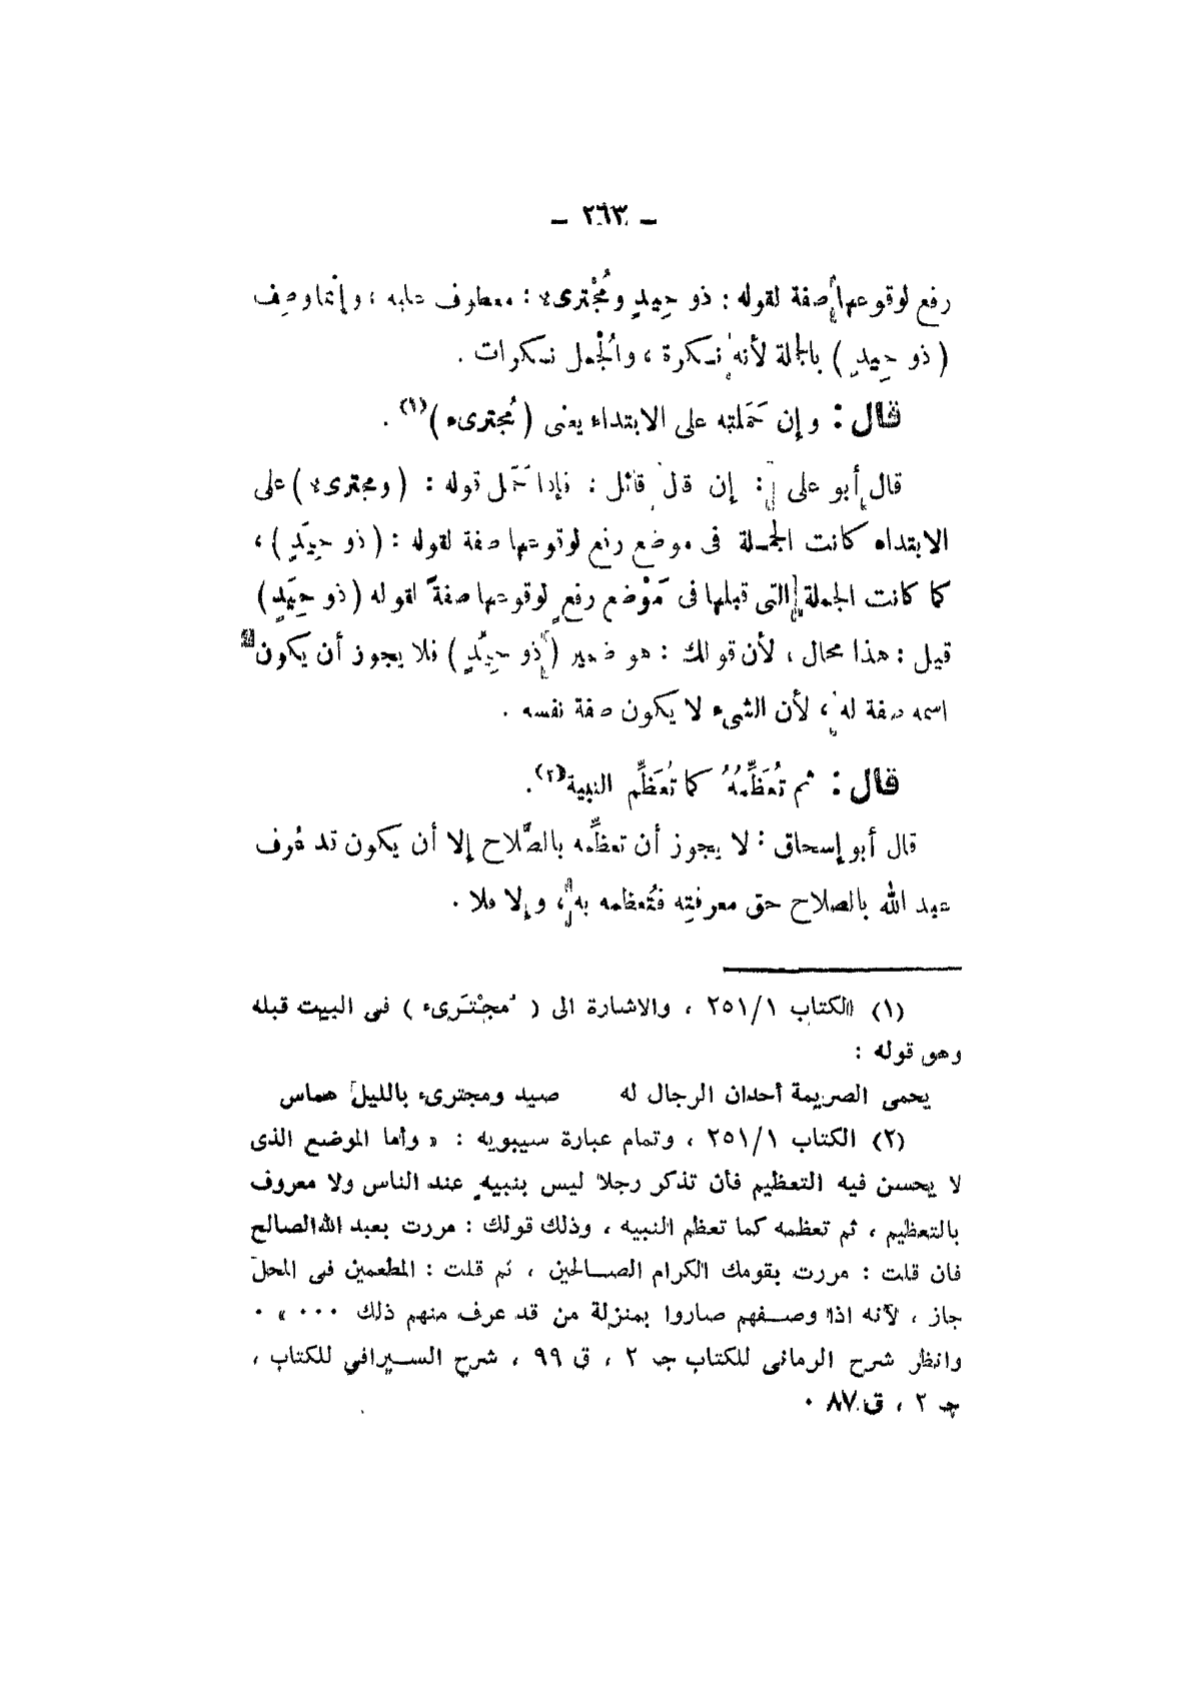 – ٢٦٣ –
رفع لوقوعها صفة لقوله : ذو حِيدٍ ومُجْترىء : معطوف عليه ، وإنما وصِف
( ذو حِيدٍ ) بالجملة لأنه نكرة ، والجُمل نكرات .
قال : وإن حَمَلته على الابتداء يعنى ( مُجترىء )(١) .
قال أبو على : إن قال قائل : فإذا حَمَل قوله : ( ومجترىء ) على
الابتداء كانت الجملة فى موضع رفع لوقوعها صفة لقوله : ( ذو حِيَدٍ ) ،
كما كانت الجملة التى قبلها فى مَوْضع رفعٍ لوقوعها صفةً لقوله ( ذو حِيَدٍ )
قيل : هذا محال ، لأن قولك : هو ضمير ( ذو حِيَدٍ ) فلا يجوز أن يكون
اسمه صفة له ، لأن الشىء لا يكون صفة نفسه .
قال : ثم تُعَظِّمُهُ كما تُعَظِّم النبيه(٢) .
قال أبو إسحاق : لا يجوز أن تعظِّمه بالصَّلاح إلا أن يكون قد عُرف
عبد الله بالصلاح حق معرفتِه فتُعظمه به ، وإلا فلا .
(١) الكتاب ٢٥١/١ ، والاشارة الى ( مُجْتَرِىء ) فى البيت قبله
وهو قوله :
يحمى الصريمة أحدان الرجال له صيد ومجترىء بالليل هماس
(٢) الكتاب ٢٥١/١ ، وتمام عبارة سيبويه : « وأما الموضع الذى
لا يحسن فيه التعظيم فأن تذكر رجلا ليس بنبيه عند الناس ولا معروف
بالتعظيم ، ثم تعظمه كما تعظم النبيه ، وذلك قولك : مررت بعبد الله الصالح
فان قلت : مررت بقومك الكرام الصالحين ، ثم قلت : المطعمين فى المحل
جاز ، لأنه اذا وصفهم صاروا بمنزلة من قد عرف منهم ذلك ٠٠٠ » ٠
وانظر شرح الرمانى للكتاب جـ ٢ ، ق ٩٩ ، شرح السيرافي للكتاب ،
جـ ٢ ، ق ٨٧ ٠